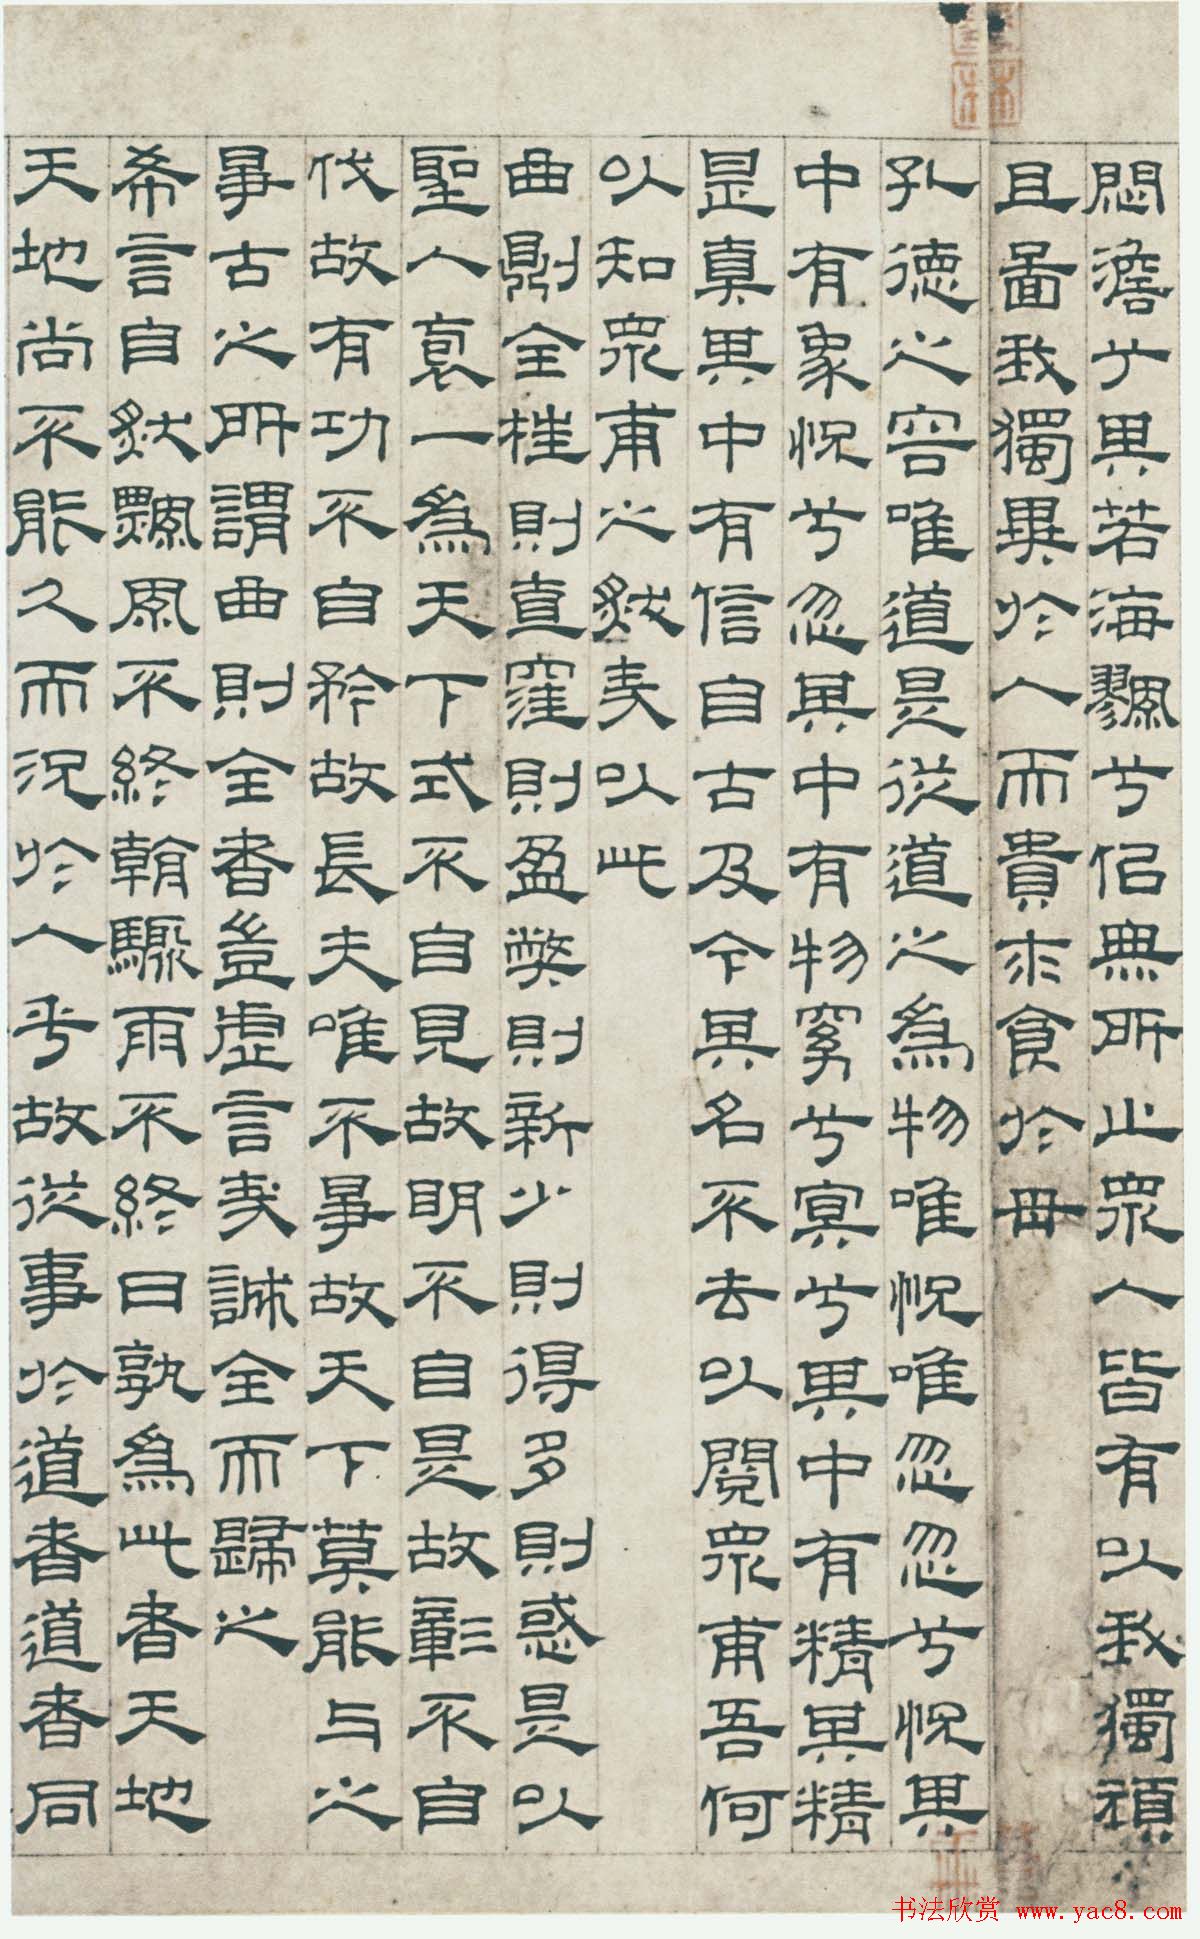 悶澹兮其若海飂兮似無所止衆人皆有以我獨頑
且啚我獨異於人而貴求食於母
孔德之容唯道是從道之為物唯怳唯忽忽兮怳其
中有象怳兮忽其中有物窈兮冥兮其中有精其精
甚真其中有信自古及今其名不去以閱衆甫吾何
以知衆甫之然哉以此
曲則全枉則直窪則盈弊則新少則得多則惑是以
聖人袌一為天下式不自見故明不自是故彰不自
伐故有功不自矜故長夫唯不爭故天下莫能与之
爭古之所謂曲則全者豈虛言哉誠全而歸之
希言自然飄風不終朝驟雨不終日孰為此者天地
天地尚不能久而況於人乎故從事於道者道者同
书法欣赏 www.yac8.com